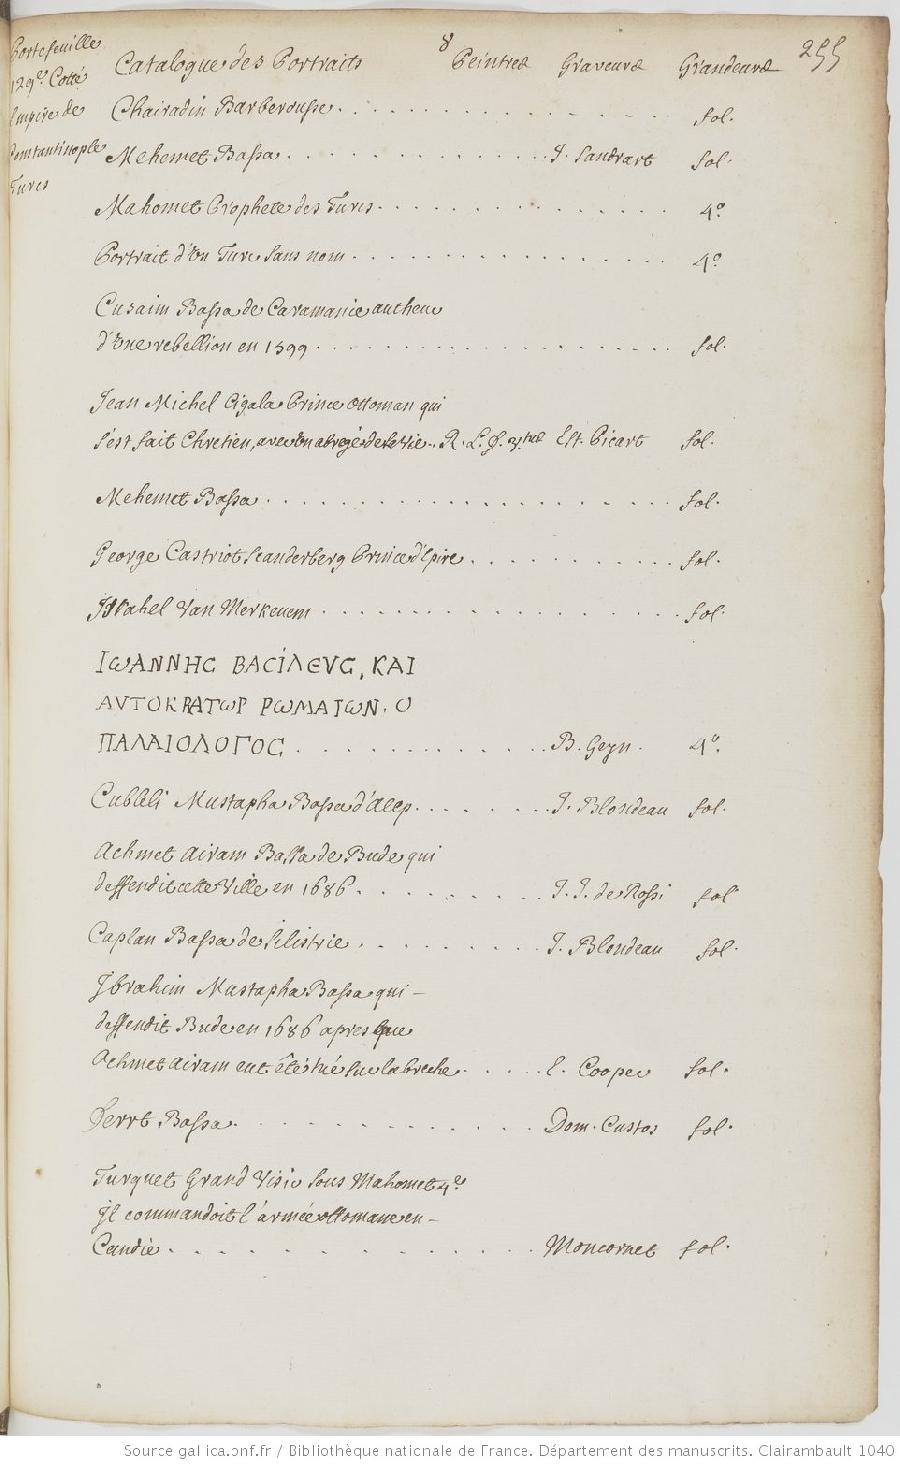 Portefeuille
129e Cotté
Empire de
Constantinople
Turcs
8
255
Catalogue des Portraits Peintres Graveurs Grandeurs
Chairadin Barberousse . . . . . . . . . . . . fol.
Mehemet Bassa . . . . . . . . . . . . J. Sandrart fol.
Mahomet Prophete des Turcs . . . . . . . . . . . . 4o
Portrait d'Un Turc sans nom . . . . . . . . . . . . 4o
Cusaim Bassa de Caramanie autheur
d'Une rebellion en 1599 . . . . . . . . . . . . fol.
Jean Michel Cigala Prince ottoman qui
s'est fait Chretien, avec Un abregé de sa Vie . . Est. Picart fol.
Mehemet Bassa . . . . . . . . . . . . fol.
George Castriot Scanderberg Prince d'Epire . . . . . . . . . fol.
Israhel Van Merkenem . . . . . . . . . . . . fol.
ΙωΑΝΝΗC ΒΑCΙΛΕΥC, ΚΑΙ
ΑΥΤΟΚΡΑΤωΡ ΡωΜΑΙωΝ. Ο
ΠΑΛΑΙΟΛΟΓΟC . . . . . . . . . . B. Geyn. 4o.
Cubleli Mustapha Bassa d'Alep . . . . . . . J. Blondeau fol.
Achmet Airam Bassa de Bude qui
deffendit cette Ville en 1686 . . . . . . . . J. J. de Rossi fol
Caplan Bassa de Silistrie . . . . . . . . . J. Blondeau fol.
Ibrahim Mustapha Bassa qui -
deffendit Bude en 1686 apres que
Achmet airam eut été tué sur la breche . . . . . E. Cooper fol.
Ferrt Bassa . . . . . . . . . . . . Dom. Custos fol.
Turquet Grand Visir sous Mahomet 4e
Il commandoit l'armée ottomane en -
Candie . . . . . . . . . . . . . Moncornet fol.
Source gallica.bnf.fr / Bibliothèque nationale de France. Département des manuscrits. Clairambault 1040